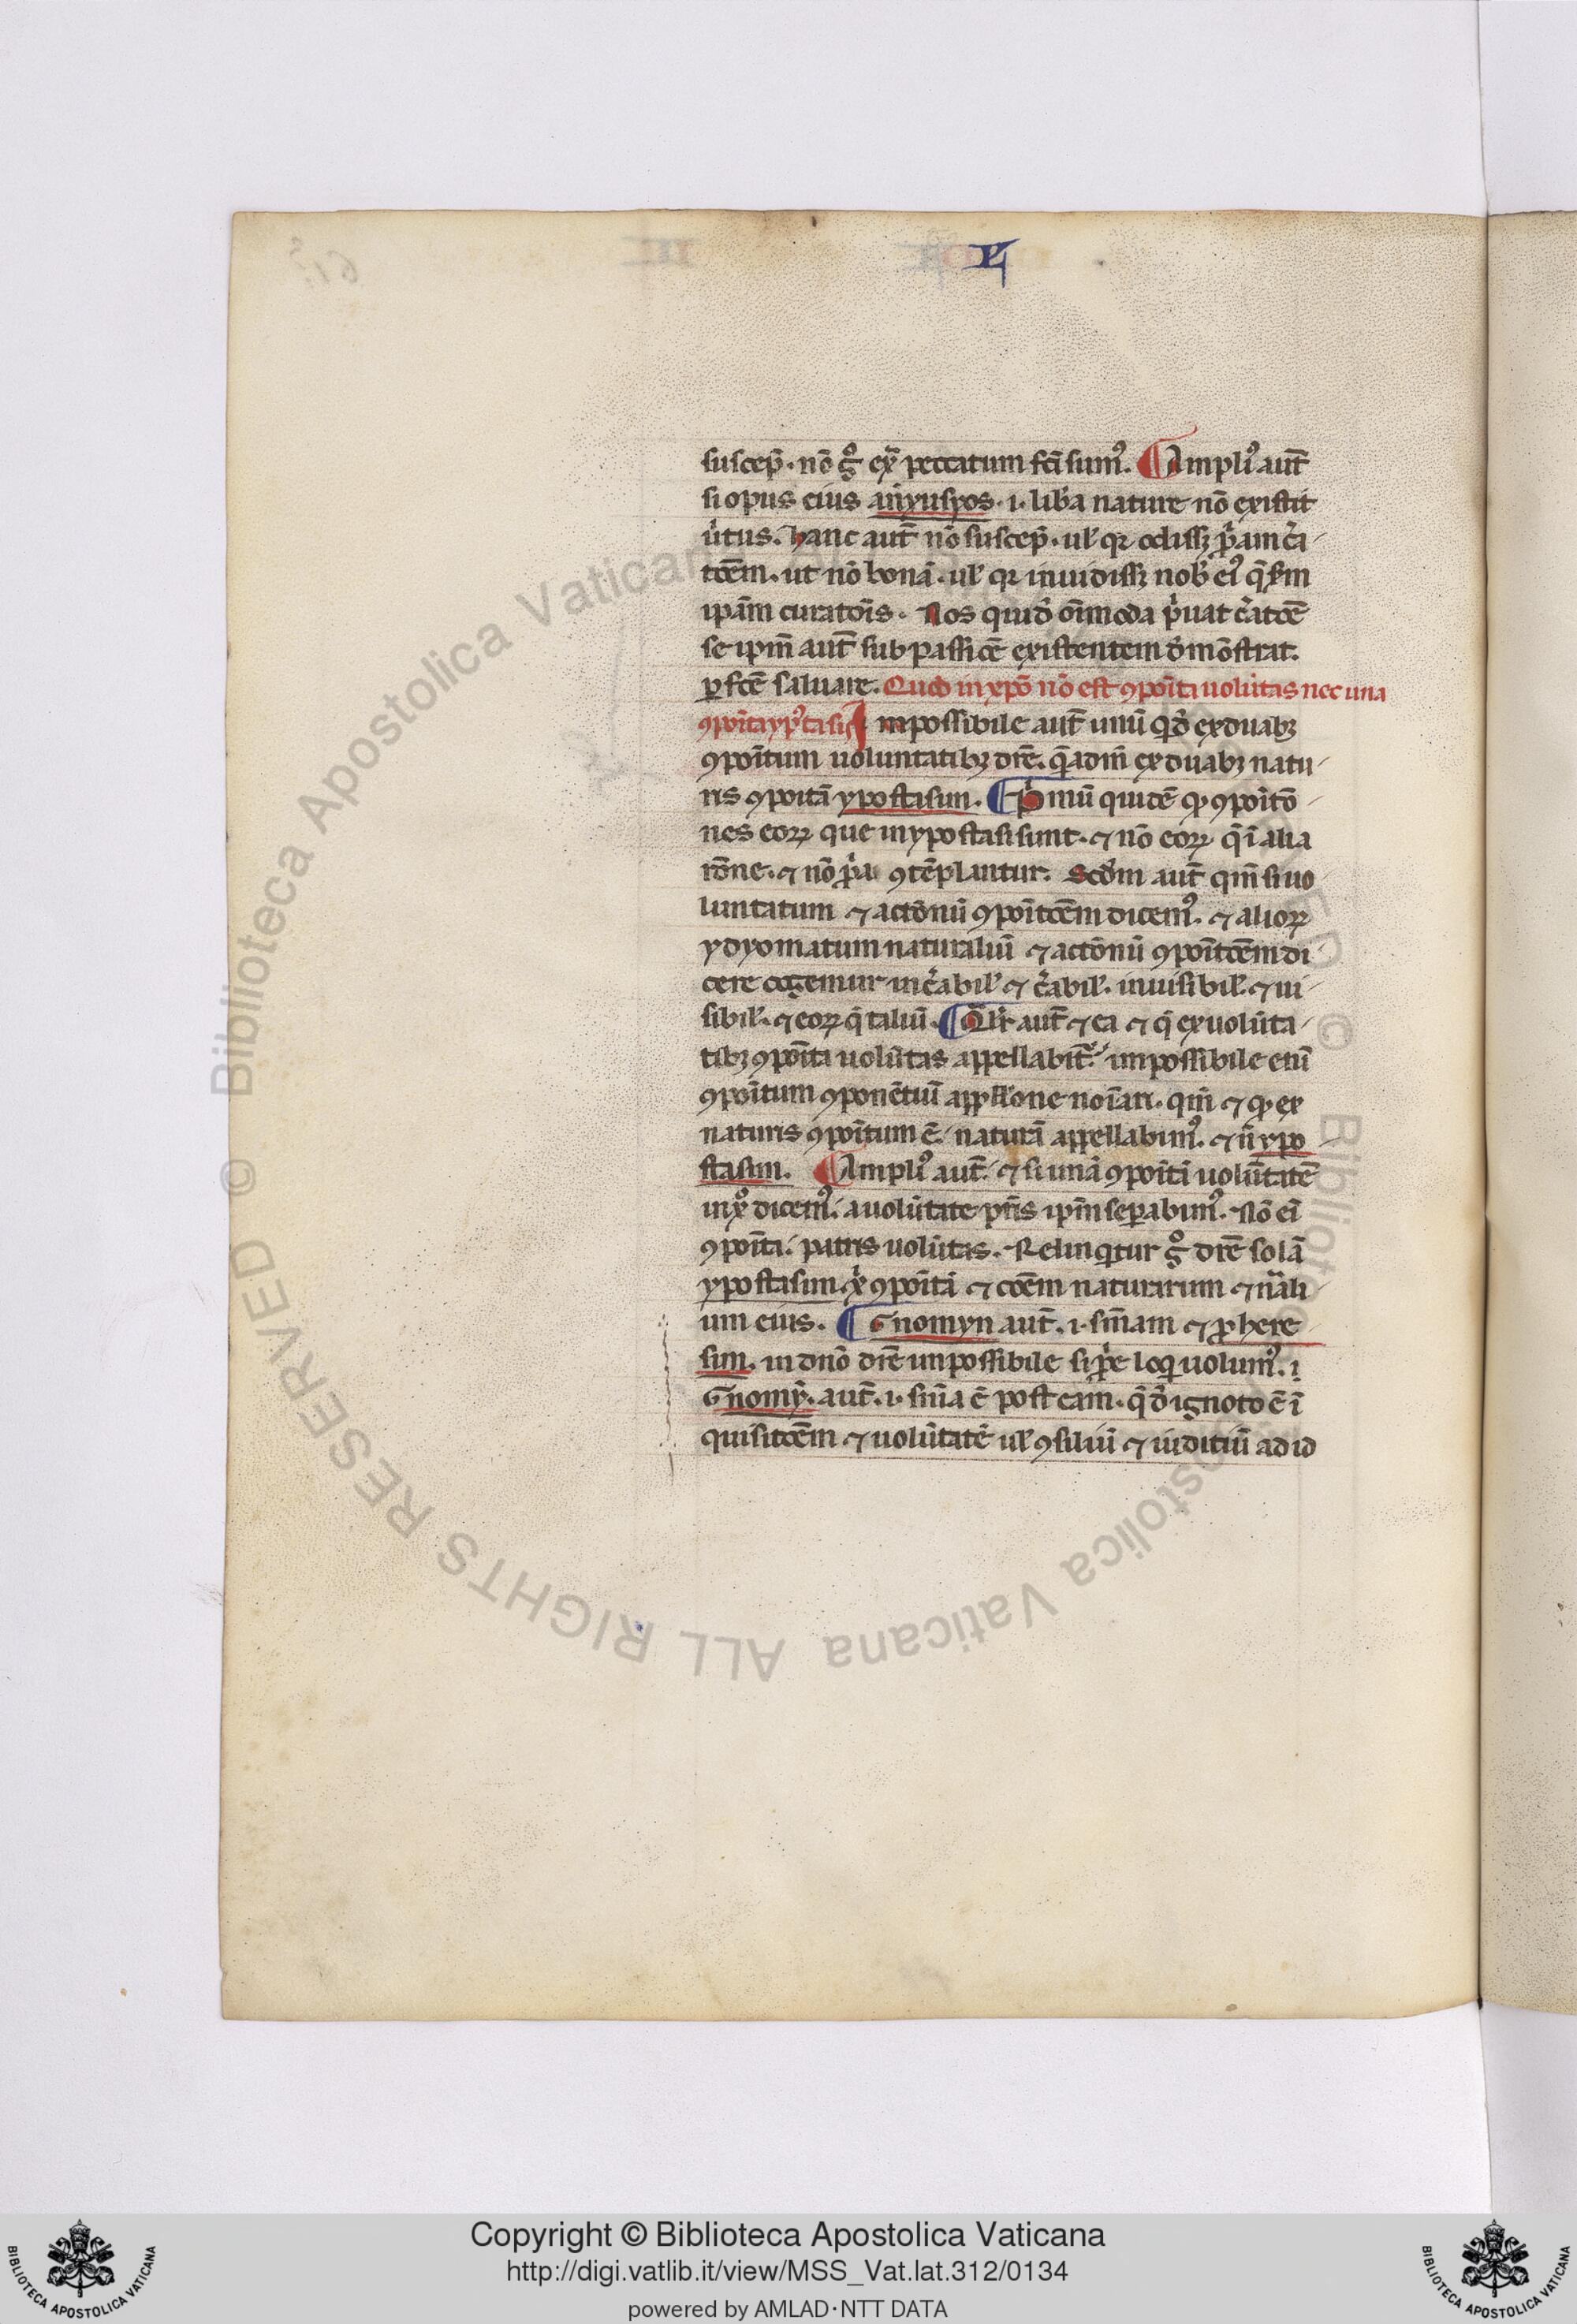 L
suscep̄. nō g̊ ex̄ peccatum fc̄i sumꝰ. ¶ Ampliꝰ aut̄
si opus eius anyusyos. i. lib̾a nature nō existit
u̾tus. hanc aut̄ nō suscep̄. ul̄ qr odissꝫ p̾am c̾a
tōem. ut nō bonā. ul̄ qr inuidissꝫ nob̾ eiꝰ q̄
ipām curatōis. Nos quid̾ om̄moda p̾uat c̾atōe
se ipm̄ aut̄ sub passiōe existentem d̾mōstrat.
ꝑfc̄e saluare. Quod in xpō nō est ꝯpoīta uolūtas nec una
ꝯpoīta ypꝰtasis Impossibile aut̄ unū qͥd̾ ex duabꝫ
ꝯpoītum uoluntatibꝫ dr̄e. q̄adm̄ ex duabꝫ natu
ris ꝯpoitā ypostasim. ¶ P̾mū quidē qꝫ ꝯpoītō
nes eoꝝ que in ypostasi sunt. ⁊ nō eoꝝ q̄ ī alia
rōne. ⁊ nō p̾a ꝯtēplantur. Scd̾m aut̄ qm̄ si uo
luntatum ⁊ actōnū ꝯpoītōem dicemꝰ. ⁊ alioꝝ
ydyomatum naturaliū ⁊ actōnū ꝯpoītōem di
cere cogemur inc̾abil̾ ⁊ c̾abil̾. inuisibil̾ ⁊ ui
sibil̾. ⁊ eoꝝ q̄ taliū. ¶ Qlr̄ aut̄ ⁊ ea ⁊ q̄ ex uolūta
tibꝫ ꝯpoīta uolūtas appellabit̾. impossibile enī
ꝯpoītum ꝯponētiū appll̾one noīari. qm̄ ⁊ qꝫ ex
naturis ꝯpoītum ē. naturā appellabimꝰ. ⁊ n̄ ypo
stasim. ¶ Ampliꝰ aut̄. ⁊ si unā ꝯpoitā uolūtatē
in xͦ dicemꝰ. a uolūtate pr̄is ipm̄ seꝑabimꝰ. Nō eī
ꝯpoīta. patris uolūtas. Relinqͥtur g̊ dr̄e solā
ypostasim x̾ ꝯpoītā ⁊ cōem naturarum ⁊ nāli
um eius. ¶ Gnomyn aut̄. i. sn̄iam ⁊ ꝓhere
sim. in dnō dr̄e impossibile si ꝓp̾e loqͥ uolumꝰ.
Gnomy̾. aut̄. i. sn̄ia ē post eam. q̄ d̾ ignoto ē ī
quisitōem ⁊ uolūtatē ul̄ ꝯsiliū ⁊ iuditiū ad id
Copyright © Biblioteca Apostolica Vaticana
http://digi.vatlib.it/view/MSS_Vat.lat.312/0134
powered by AMLAD·NTT DATA
BIBLIOTECA APOSTOLICA VATICANA
BIBLIOTECA APOSTOLICA VATICANA
© Biblioteca Apostolica Vaticana ALL RIGHTS RESERVED